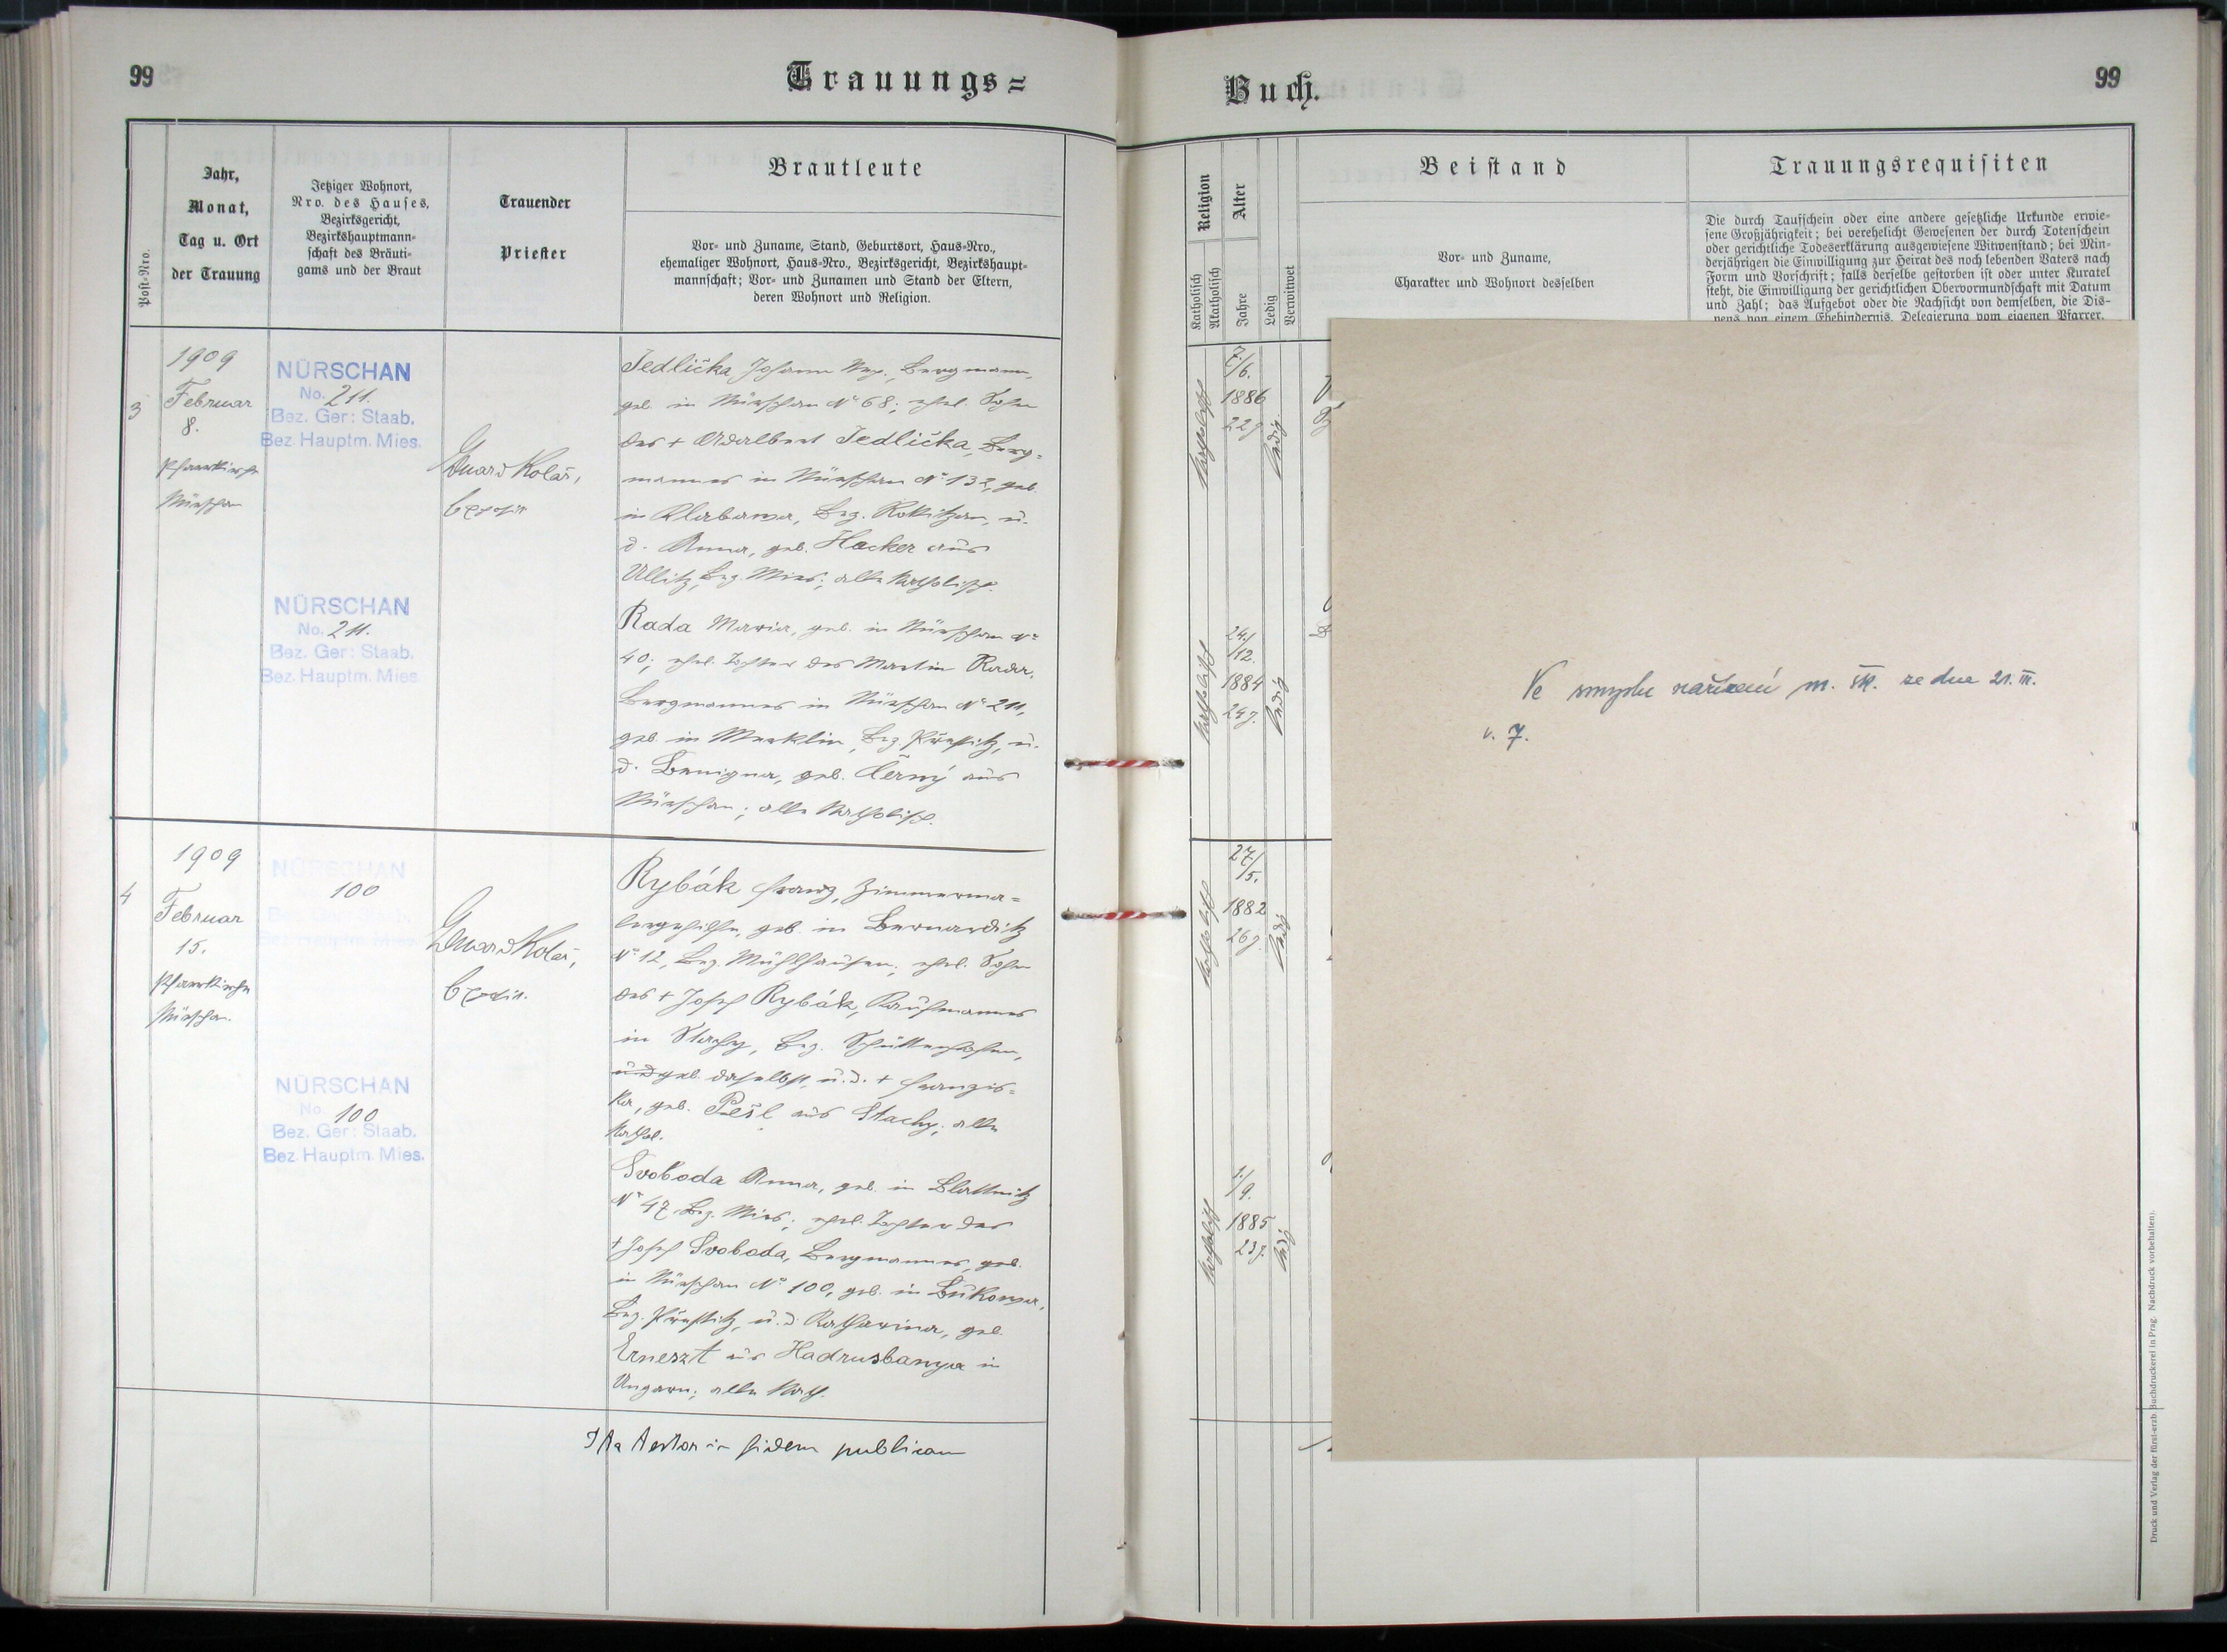 99
Trauungs=
Buch.
99
Post-Nro.
Jahr,
Monat,
Tag u. Ort
der Trauung
Jetziger Wohnort,
Nro. des Hauses,
Bezirksgericht,
Bezirkshauptmann-
schaft des Bräuti-
gams und der Braut
Trauender
Priester
Brautleute
Vor- und Zuname, Stand, Geburtsort, Haus-Nro.,
ehemaliger Wohnort, Haus-Nro., Bezirksgericht, Bezirkshaupt-
mannschaft; Vor- und Zunamen und Stand der Eltern,
deren Wohnort und Religion.
Religion
Katholisch
Akatholisch
Alter
Jahre
Ledig
Verwitwet
Beistand
Vor- und Zuname,
Charakter und Wohnort desselben
Trauungsrequisiten
Die durch Taufschein oder eine andere gesetzliche Urkunde erwie-
sene Großjährigkeit; bei verehelicht Gewesenen der durch Totenschein
oder gerichtliche Todeserklärung ausgewiesene Witwenstand; bei Min-
derjährigen die Einwilligung zur Heirat des noch lebenden Vaters nach
Form und Vorschrift; falls derselbe gestorben ist oder unter Kuratel
steht, die Einwilligung der gerichtlichen Obervormundschaft mit Datum
und Zahl; das Aufgebot oder die Nachsicht von demselben, die Dis-
pens von einem Ehehindernis, Delegierung vom eigenen Pfarrer,
3
1909
Februar
8.
Pfarrkirche
Nürschan
NÜRSCHAN
No. 211.
Bez. Ger: Staab.
Bez. Hauptm. Mies.
Eduard Kolář,
Jedlička Johann Nep., Bergmann,
geb. in Nürschan No 68; ehel. Sohn
des + Adalbert Jedlička, Berg-
mannes in Nürschan No 132, geb.
in Klabawa, Bez. Rokitzan, u.
d. Anna, geb. Hacker aus
Ullitz, Bez. Mies; alle katholisch.
katholisch
7./6.
1886
22 J.
ledig
NÜRSCHAN
No. 211.
Bez. Ger: Staab.
Bez. Hauptm. Mies
Rada Maria, geb. in Nürschan No
40; ehel. Tochter des Martin Rada,
Bergmannes in Nürschan No 211,
geb. in Merklin, Bez. Přestitz, u.
d. Benigna, geb. Černý aus
Nürschan; alle katholisch.
katholisch
24./12.
1884
24 J.
ledig
4
1909
Februar
15.
Pfarrkirche
Nürschan.
NÜRSCHAN
100
Eduard Kolář,
Rybák Franz, Zimmerma-
lergehilfe, geb. in Bernarditz
No 12, Bez. Mühlhausen; ehel. Sohn
des + Josef Rybák, Kaufmannes
in Stachy, Bez. Schüttenhofen,
und geb. daselbst, u. d. + Franzis-
ka, geb. Pešl aus Stachy; alle
kathol.
katholisch
27./5.
1882
26 J.
ledig
NÜRSCHAN
No. 100
Bez. Ger: Staab.
Bez. Hauptm. Mies.
Svoboda Anna, geb. in Blattnitz
No 47, Bez. Mies; ehel. Tochter des
+ Josef Svoboda, Bergmannes, geb.
in Nürschan No 100, geb. in Bukowa,
Bez. Přestitz, u. d. Katharina, geb.
Erneszt aus Hadrusbanya in
Ungarn; alle kath.
katholisch
1./9.
1885
23 J.
ledig
Ita testor in fidem publicam
Ve smyslu nařízení m. vn. ze dne 21. III.
v. 7.
Druck und Verlag der fürst-erzb. Buchdruckerei in Prag. Nachdruck vorbehalten).